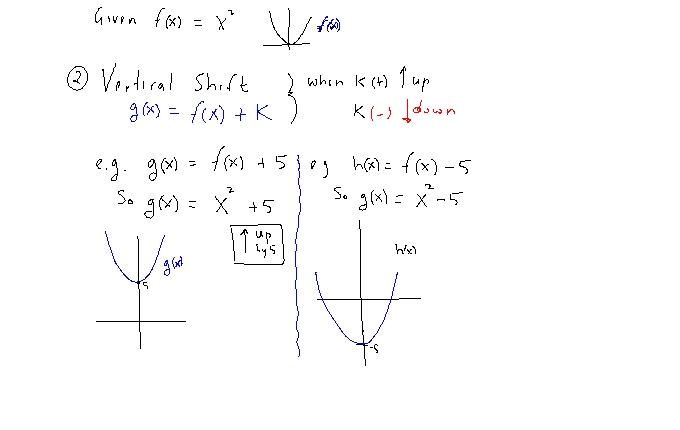 Given f(x) = x²
f(x)
② Vertical Shift } when K(+) ↑ up
g(x) = f(x) + K
K(-) ↓ down
e.g. g(x) = f(x) + 5
So g(x) = x² + 5
↑ up
by 5
g(x)
5
eg h(x) = f(x) - 5
So g(x) = x² - 5
h(x)
-5